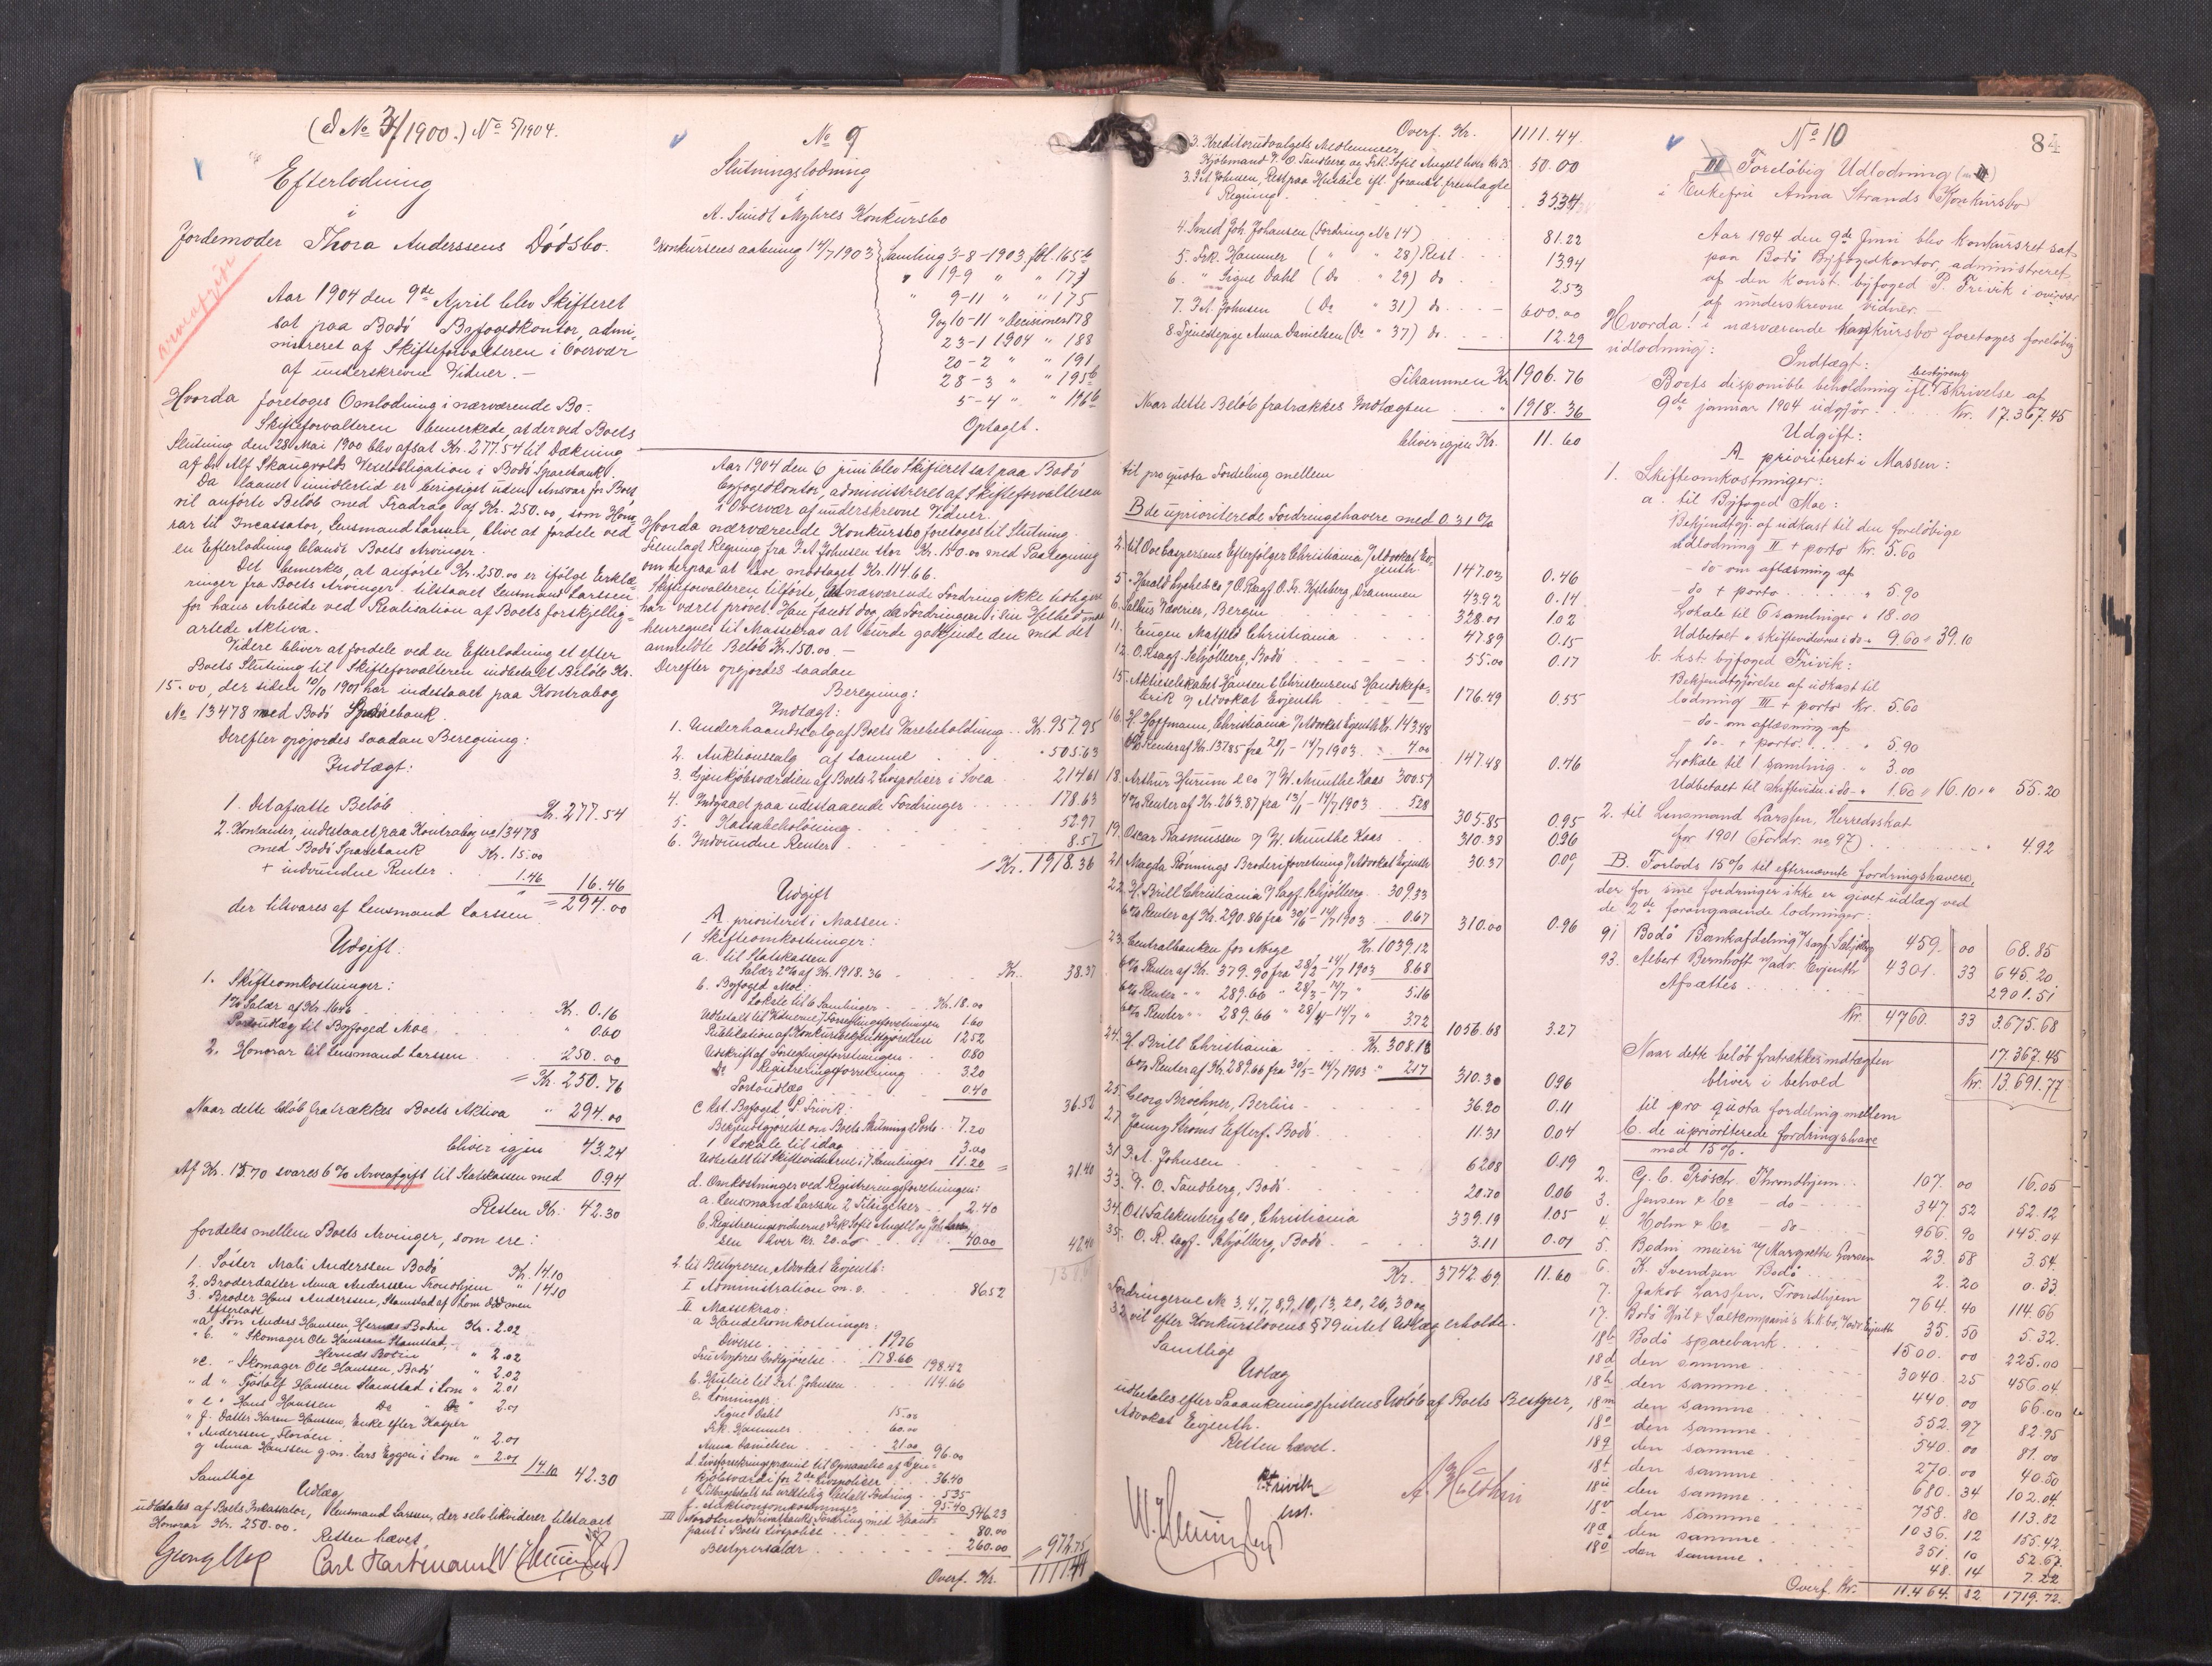 (ad No 3/1900.) No 5/1904.
Efterlodning
i
Jordemoder Thora Anderssens Dødsbo.
arveafgift
Aar 1904 den 9de April blev Skifteret
sat paa Bodø Byfogedkontor, admi=
nistreret af Skifteforvalteren i Overvær
af underskrevne Vidner. —
Hvorda foretoges Omlodning i nærværende Bo.
Skifteforvalteren bemerkede, at der ved Boets
Slutning den 28 Mai 1900 blev afsat Kr. 277.54 til Dækning
af Dr. Alf Skaugvolds Vexelobligation i Bodø Sparebank.
Da laanet imidlertid er berigtiget uden Ansvar for Boet
vil anførte Beløb med Fradrag af Kr. 250.00, som Hono=
rar til Incassator, Lensmand Larssen, blive at fordele ved
en Efterlodning blandt Boets Arvinger.
Det bemerkes, at anførte Kr. 250.00 er ifølge Erklæ=
ringer fra Boets Arvinger tilstaaet Lensmand Larssen
for hans Arbeide ved Realisation af Boets forskjellig=
artede Aktiva.
Videre bliver at fordele ved en Efterlodning et efter
Boets Slutning til Skifteforvalteren indbetalt Beløb Kr.
15.00, der siden 10/10 1901 har indestaaet paa Kontrabog
No 13478 med Bodø Sparebank.
Derefter opgjordes saadan Beregning:
Indtægt:
1. Det afsatte Beløb Kr. 277.54
2. Kontanter, indestaaet paa Kontrabog no 13478
med Bodø Sparebank Kr. 15.00
+ indvundne Renter 1.46 16.46
der tilsvares af Lensmand Larssen = 294.00
Udgift:
1. Skifteomkostninger:
1% Salær af Kr. 16.46 Kr. 0.16
Portoudlæg til Byfoged Moe " 0.60
2. Honorar til Lensmand Larssen 250.00
= Kr. 250.76
Naar dette beløb fratrækkes Boets Aktiva " 294.00
bliver igjen 43.24
Af Kr. 15.70 svares 6% Arveafgift til Statskassen med 0.94
Resten Kr: 42.30
fordeles mellem Boets Arvinger, som ere:
1. Søster Mali Anderssen Bodø Kr. 14.10
2. Broderdatter Anna Anderssen Trondhjem " 14.10
3. Broder Hans Anderssen, Stamstad af Lom død men
efterladt
"a) Søn Anders Hanssen, Hernæs Bodin Kr. 2.02
" b. " Skomager Ole Hanssen Stamstad,
Hernæs Bodin " 2.02
"c. " Skomager Ole Hanssen, Bodø " 2.02
" d " Tjodolf Hanssen Stamstad i Lom " 2.01
" e " Hans Hanssen Do " Do " 2.01
" f. Datter Karen Hanssen, Enke efter Kasper
Anderssen, Florøen " 2.01
g Anna Hanssen g.m. Lars Eggen i Lom " 2.01 14.10 42.30
Samtlige
Udlæg
udbetales af Boets Inkassator, Lensmand Larssen, der selv likviderer tilstaaet
Honorar Kr. 250.00.
Retten hævet.
Georg Moe Carl Hartmann
No 9
Slutningslodning
i
A. Sundt Myhres Konkursbo
Konkursens aabning 14/7 1903 Samling 3-8-1903 fol. 165b
" 19-9 " " 171
" 9-11 " " 175
9 og 10-11 " Decisioner 178
23-1 1904 " 188
20-2 " " 191
28-3 " " 195b
5-4 " " 196b
Optaget.
Aar 1904 den 6 juni blev Skifteret sat paa Bodø
Byfogedkontor, administreret af Skifteforvalteren
i Overvær af underskrevne Vidner.
Hvorda nærværende Konkursbo foretoges til Slutning.
Fremlagt Regning fra F. A. Johnsen stor Kr. 150.00 med Paategning
om herpaa at have modtaget Kr. 114.66.
Skifteforvalteren tilførte, at nærværende Fordring ikke tidligere
har været prøvet. Han fandt dog, da Fordringen i sin Helhed maa
henregnes til Massekrav at burde godkjende den med det
anmeldte Beløb Kr. 150.00. —
Derefter opgjordes saadan
Beregning:
Indtægt:
1. Underhaandssalg af Boets Varebeholdning Kr. 957.95
2. Auktionssalg af samme " 505.63
3. Gjenkjøbsværdien af Boets 2 Livspolicer i Svea 214.61
4. Indgaaet paa udestaaende Fordringer 178.63
5. Kassabeholdning 52.97
6. Indvundne Renter 8.57
= Kr. 1918.36
Udgift
A prioriteret i Massen:
1 Skifteomkostninger:
a. til Statskassen
Salær 2% af Kr. 1918.36 Kr. 38.37
b. Byfoged Moe:
Lokale til 6 Samlinger Kr. 18.00
Udbetalt til Vidnerne 7 Forseglingsforretningen 1.60
Publikation af Konkursbekjendtgjørelsen 12.52
Udskrift af Forseglingsforretningen 0.80
Do Registreringsforretning 3.20
Portoudlæg 0.40
36.52
c Kst. Byfoged P. Trivik:
Bekjendtgjørelse om Boets Slutning & Porto 7.20
1 Lokale til idag 3.00
Udbetalt til Skiftevidnerne i 7 Samlinger 11.20 = 21.40
d. Omkostninger ved Registreringsforretningen:
a. Lensmand Larssen 2 Tilsigelser 2.40
b. Registreringsvidnerne Frk. Sofie Angell og Joh. Lars=
sen hver Kr. 20.00 40.00 42.40
2. til Bestyreren, Advokat Evjenth:
I Administration m.v. 86.52
II Massekrav:
a Handelsomkostninger:
Diverse 19.76
Fru Myhres Godtgjørelse 178.66 198.42
b. Husleie til F. A. Johnsen 114.66
c. Lønninger:
Signe Dahl 15.00
Frk. Hammer 60.00
Anna Danielsen 21.00 96.00
d. Livsforsikringspræmie til Opnaaelse af Gjen=
kjøbsværdi for 2 de Livspolicer 36.40
e Tilbagebetalt en urettelig betalt Fordring 5.35
f. Auktionsomkostninger 95.40 546.23
III Nordlands Privatbanks Fordring med Haand=
pant i Boets Livspolice 80.00
Bestyrersalær 260.00 = 972.75
Overf. Kr. 1111.44
Overf. Kr. 1111.44
3. Kreditorudvalgets Medlemmer,
Kjøbmand P. O. Sandberg og Frk. Sofie Angell hver Kr 25 50.00
3. F. A. Johnsen, Rest paa Husleie ifl. foranst. fremlagte
Regning 35.34
4. Smed Joh. Johansen (Fordring No 14) 81.22
5. Frk. Hammer ( " " 28) Rest 13.94
6. " Signe Dahl (Do " 29) do 2.53
7. F. A. Johnsen (Do " 31) do 600.00
8. Tjenestepige Anna Danielsen (Do " 37) do 12.29
Tilsammen Kr 1906.76
Naar dette Beløb fratrækkes Indtægten " 1918.36
bliver igjen Kr. 11.60
til pro quota Fordeling mellem
B de uprioriterede Fordringshavere med 0.31%
2. til Ove Caspersens Efterfølger Christiania 7 Advokat Ev=
jenth 147.03 0.46
5. " Harald Lyche & Co 7 O.Rsagf. O. Fr. Kyhlsberg Drammen 43.92 0.14
6. Salhus Væverier, Bergen 328.01 1.02
11. Eugen Matfeld Christiania 47.89 0.15
12. O.Rsagf. Schjølberg, Bodø 55.00 0.17
15. Aktieselskabet Hansen & Christensens Handskefa=
brik 7 Advokat Evjenth 176.49 0.55
16. H. Hoffmann, Christiania 7 Advokat Evjenth Kr. 143.48
6% Renter af Kr. 137.85 fra 20/1 – 14/7 1903 4.00 147.48 0.46
18. Arthur Hurum & Co 7 W. Munthe Kaas 300.57
4% Renter af Kr. 263.87 fra 13/1 – 14/7 1903 5.28 305.85 0.95
19. Oscar Rasmussen 7 W. Munthe Kaas 310.38 0.96
21. Magda Rønnings Broderiforretning 7 Advokat Evjenth 30.37 0.09
22. H. Brill Christiania 7 Sagf. Schjølberg 309.33
6% Renter af Kr. 290.86 fra 30/6 – 14/7 1903 0.67 310.00 0.96
23. Centralbanken for Norge Kr. 1039.12
6% Renter af Kr. 379.90 fra 28/2 – 14/7 1903 8.68
6% Renter " " 289.66 " 28/3 – 14/7 " 5.16
6% Renter " " 289.66 " 28/4 – 14/7 " 3.72 1056.68 3.27
24. H. Brill Christiania Kr. 308.13
6% Renter af Kr. 289.66 fra 30/5 – 14/7 1903 " 2.17 310.30 0.96
25. Georg Brochner, Berlin 36.90 0.11
27. Jenny Strøms Efterf. Bodø 11.31 0.04
31. F. A. Johnsen 62.08 0.19
33. P. O. Sandberg, Bodø 20.70 0.06
34. Ott Falskenberg & Co, Christiania 339.19 1.05
35. O. R. sagf. Schjølberg, Bodø 3.11 0.01
Kr. 3742.69 11.60
Fordringerne No 3, 4, 7, 8, 9, 10, 13, 20, 26, 30 og
32 vil efter Konkurslovens § 79 intet Udlæg erholde.
Samtlige
Udlæg
udbetales efter Paaankningsfristens Udløb af Boets Bestyrer,
Advokat Evjenth.
Retten hævet.
P. Trivik
kst.
No 10 84
III Foreløbig Udlodning
i Enkefru Anna Strands Konkursbo
Aar 1904 den 9de Juni blev konkursret sat
paa Bodø Byfogedkontor, administreret
af den konst. byfoged P. Trivik i overvær
af underskrevne vidner. —
Hvorda! i nærværende konkursbo foretoges foreløbig
udlodning:
Indtægt:
Boets disponible beholdning ifl. bestyrens skrivelse af
9de januar 1904 udgjør Kr. 17.367.45
Udgift:
A. prioriteret i Massen:
1. Skifteomkostninger:
a. til Byfoged Moe:
Bekjendtgj. af udkast til den foreløbige
udlodning II + porto Kr. 5.60
- do - om aflæsning af
- do + porto " 5.90
Lokale til 6 samlinger " 18.00
Udbetalt " skiftevidnerne i do " 9.60 " 39.10
b. kst. byfoged Trivik:
Bekjendtgjørelse af udkast til
lodning III + porto Kr. 5.60
- do - om aflæsning af
- do + porto " 5.90
Lokale til 1 samling " 3.00
Udbetalt til skiftevidn. i do " 1.60 " 16.10 " 55.20
2. til Lensmand Larssen, Herredsskat
for 1901 (Fordr. no 97) " 4.92
B. Forlods 15% til efternævnte fordringshavere,
der for sine fordringer ikke er givet udlæg ved
de 2de foregaaende lodninger:
91 Bodø Bankafdeling v/ sagf. Schjølberg 459. 00 68.85
93. Albert Bernhoft v/adv. Evjenth 4301. 33 645.20
Afsættes 2901.51
Kr. 4760. 33 3.675.68
Naar dette beløb fratrækkes indtægten 17.367.45
bliver i behold Kr. 13.691.77
til pro quota fordeling mellem
C. de uprioriterede fordringshave
med 15%.
2. G. C. Prösch. Throndhjem 107. 00 16.05
3. Jensen & Co - do - 347 52 52.12
4. Holm & Co - do - 966. 90 145.04
5. Bodin meieri v/ Margrethe Larssen 23. 58 3.54
6. K. Svendsen Bodø 2. 20 0.33
7. Jakob Larssen, Trondhjem 764. 40 114.66
17. Bodø Kul & Saltcompani's k.k.bo, v/adv. Evjenth 35. 50 5.32
18b Bodø sparebank 1500. 00 225.00
18d den samme 3040. 25 456.04
18h den samme 440. 00 66.00
18m den samme 552. 97 82.95
18o den samme 540. 00 81.00
18q den samme 270. 00 40.50
18t den samme 680. 34 102.04
18u den samme 758. 80 113.82
18v den samme 1036. 12 155.42
18æ den samme 351. 10 52.67
18ø den samme 48. 14 7.22
Overf. Kr. 11.464. 82 1719.72